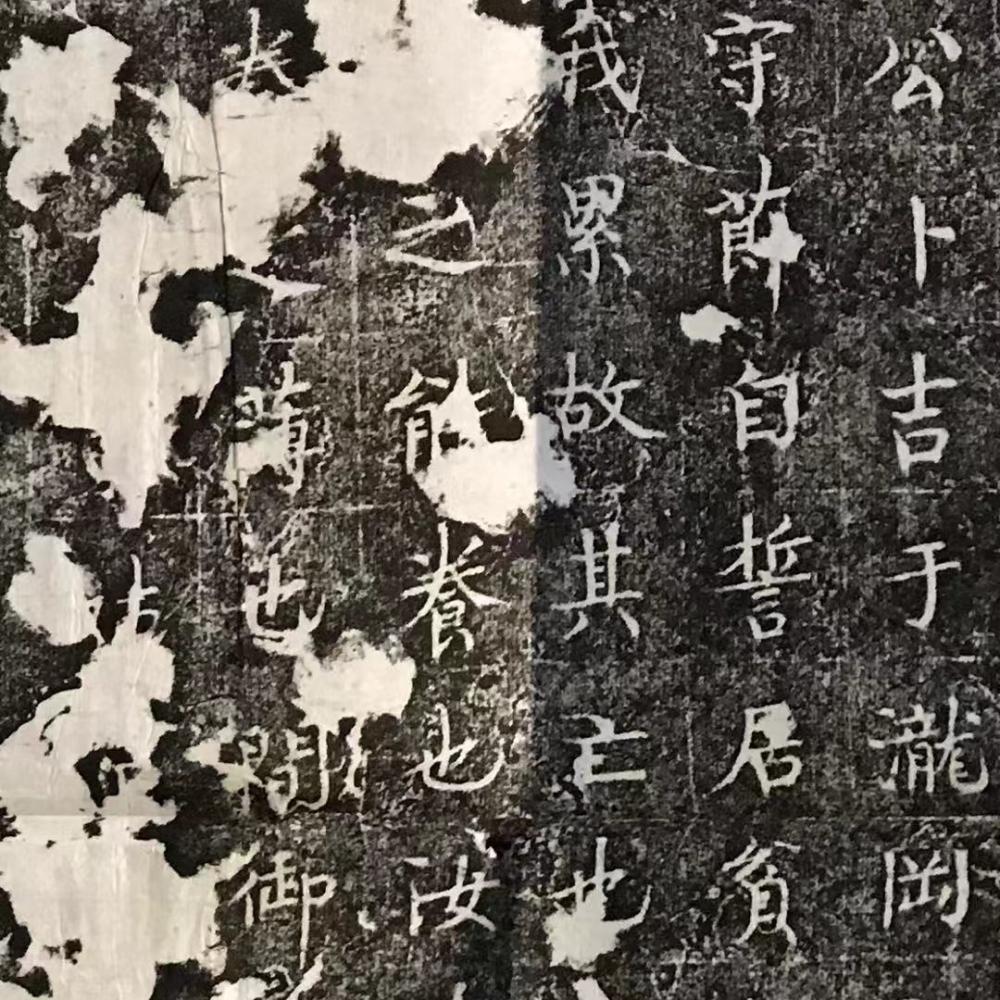 公卜吉于瀧岡
守節自誓居貧
我累故其亡也
之能養也汝
薄也間御